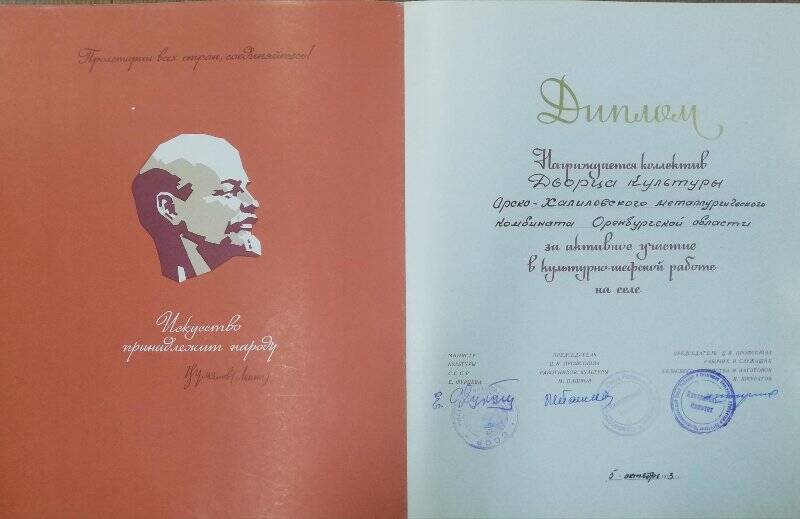 Пролетарии всех стран, соединяйтесь!
Искусство
принадлежит народу
Диплом
Награждается коллектив
Дворца Культуры
Орско-Халиловского металлургического
Комбината Оренбургской области
за активное участие
в культурно-шефской работе
на селе
МИНИСТР
КУЛЬТУРЫ
СССР
Е. ФУРЦЕВА
ПРЕДСЕДАТЕЛЬ
Ц К ПРОФСОЮЗА
РАБОТНИКОВ КУЛЬТУРЫ
М. ПАШКОВ
ПРЕДСЕДАТЕЛЬ Ц К ПРОФСОЮЗА
РАБОЧИХ И СЛУЖАЩИХ
И ЗАГОТОВОК
СССР
Центральный
Комитет
5 октября